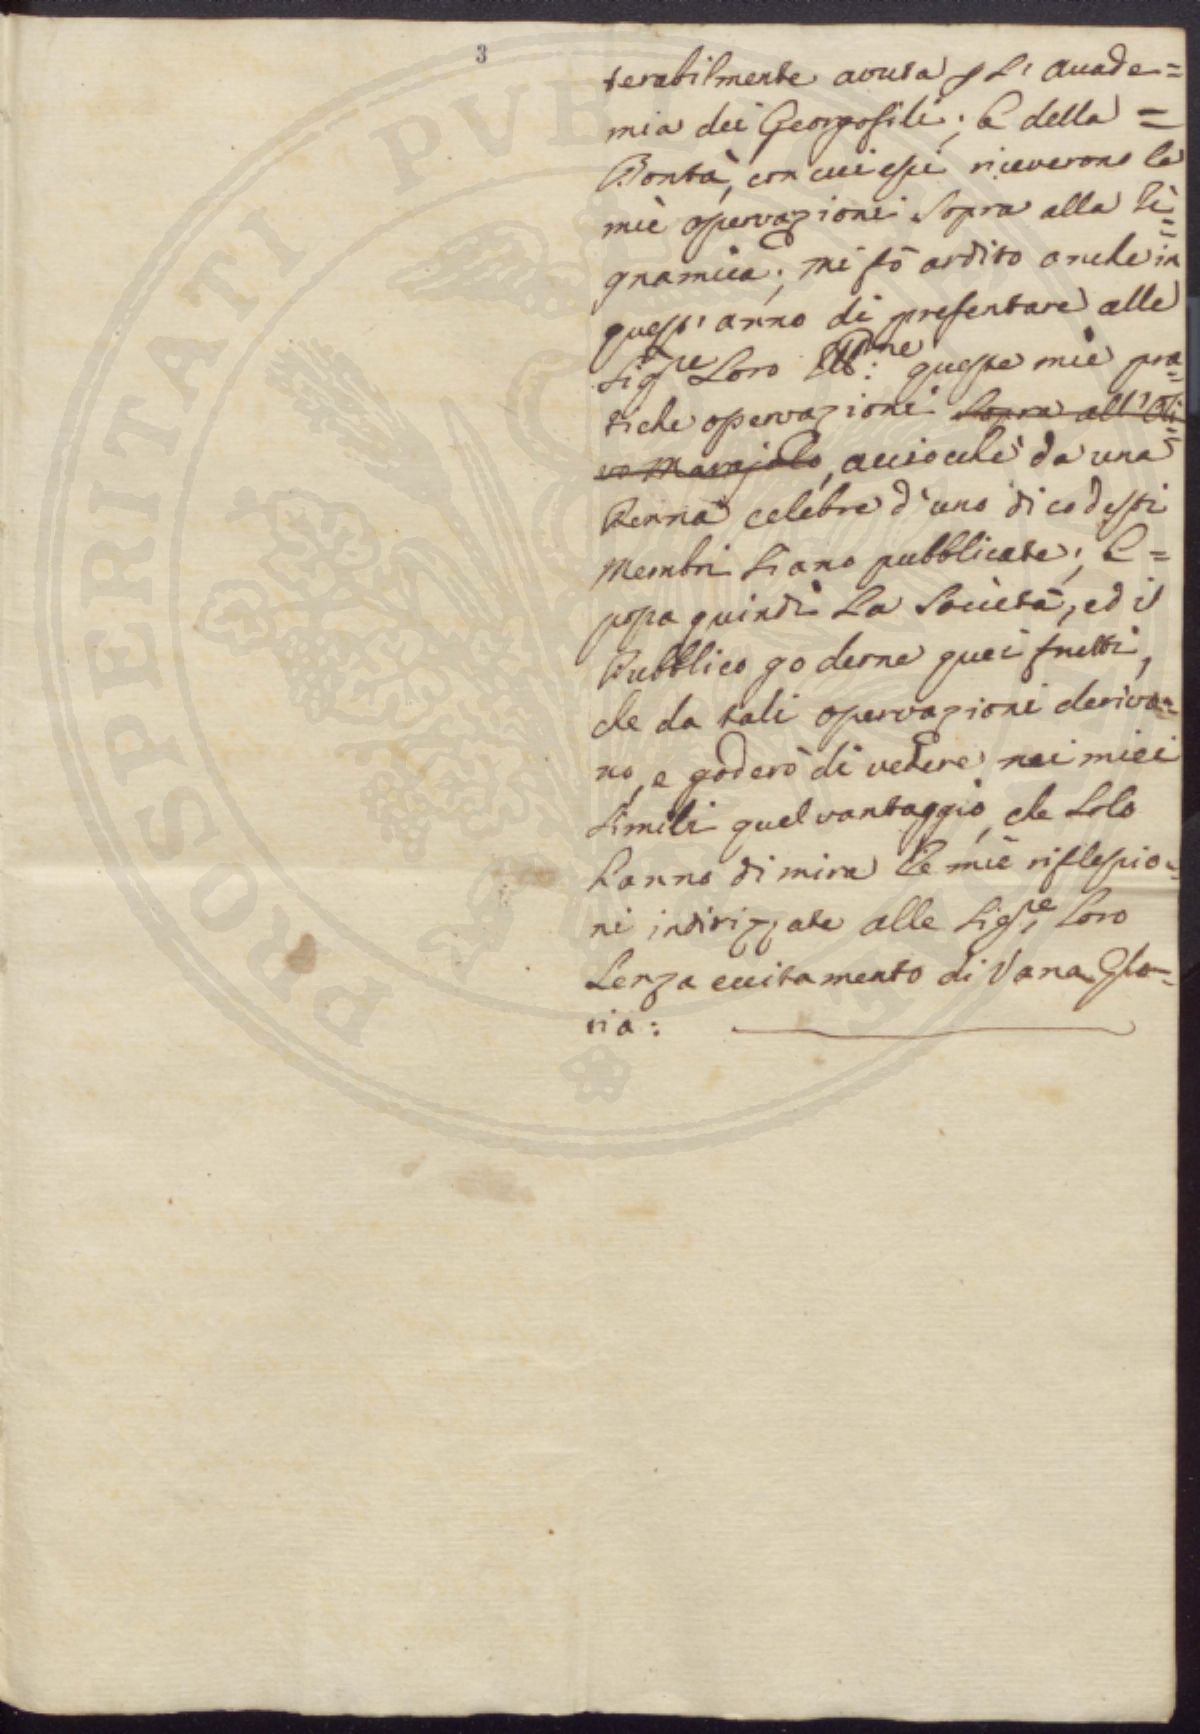 3
terabilmente avuta p L' Accade=
mia dei Georgofili; e della =
Bontà, con cui essi riceverono le
mie osservazioni sopra alla Ti=
gnamica; mi fò ardito anche in
quest' anno di presentare alle
Sig.rie Loro Ill:me queste mie pra=
tiche osservazioni sopra all' Oli=
vo Marajolo, acciocchè da una
Penna celebre d' uno di codesti
Membri siano pubblicate; e =
possa quindi La Società, ed il
Pubblico goderne quei frutti,
che da tali osservazioni deriva=
no, e goderò di vedere nei miei
simili quel vantaggio, che solo
hanno di mira le mie riflessio=
ni indirizzate alle Sig.rie Loro
senza eccitamento di Vana Glo=
ria:
PROSPERITATI PUBL